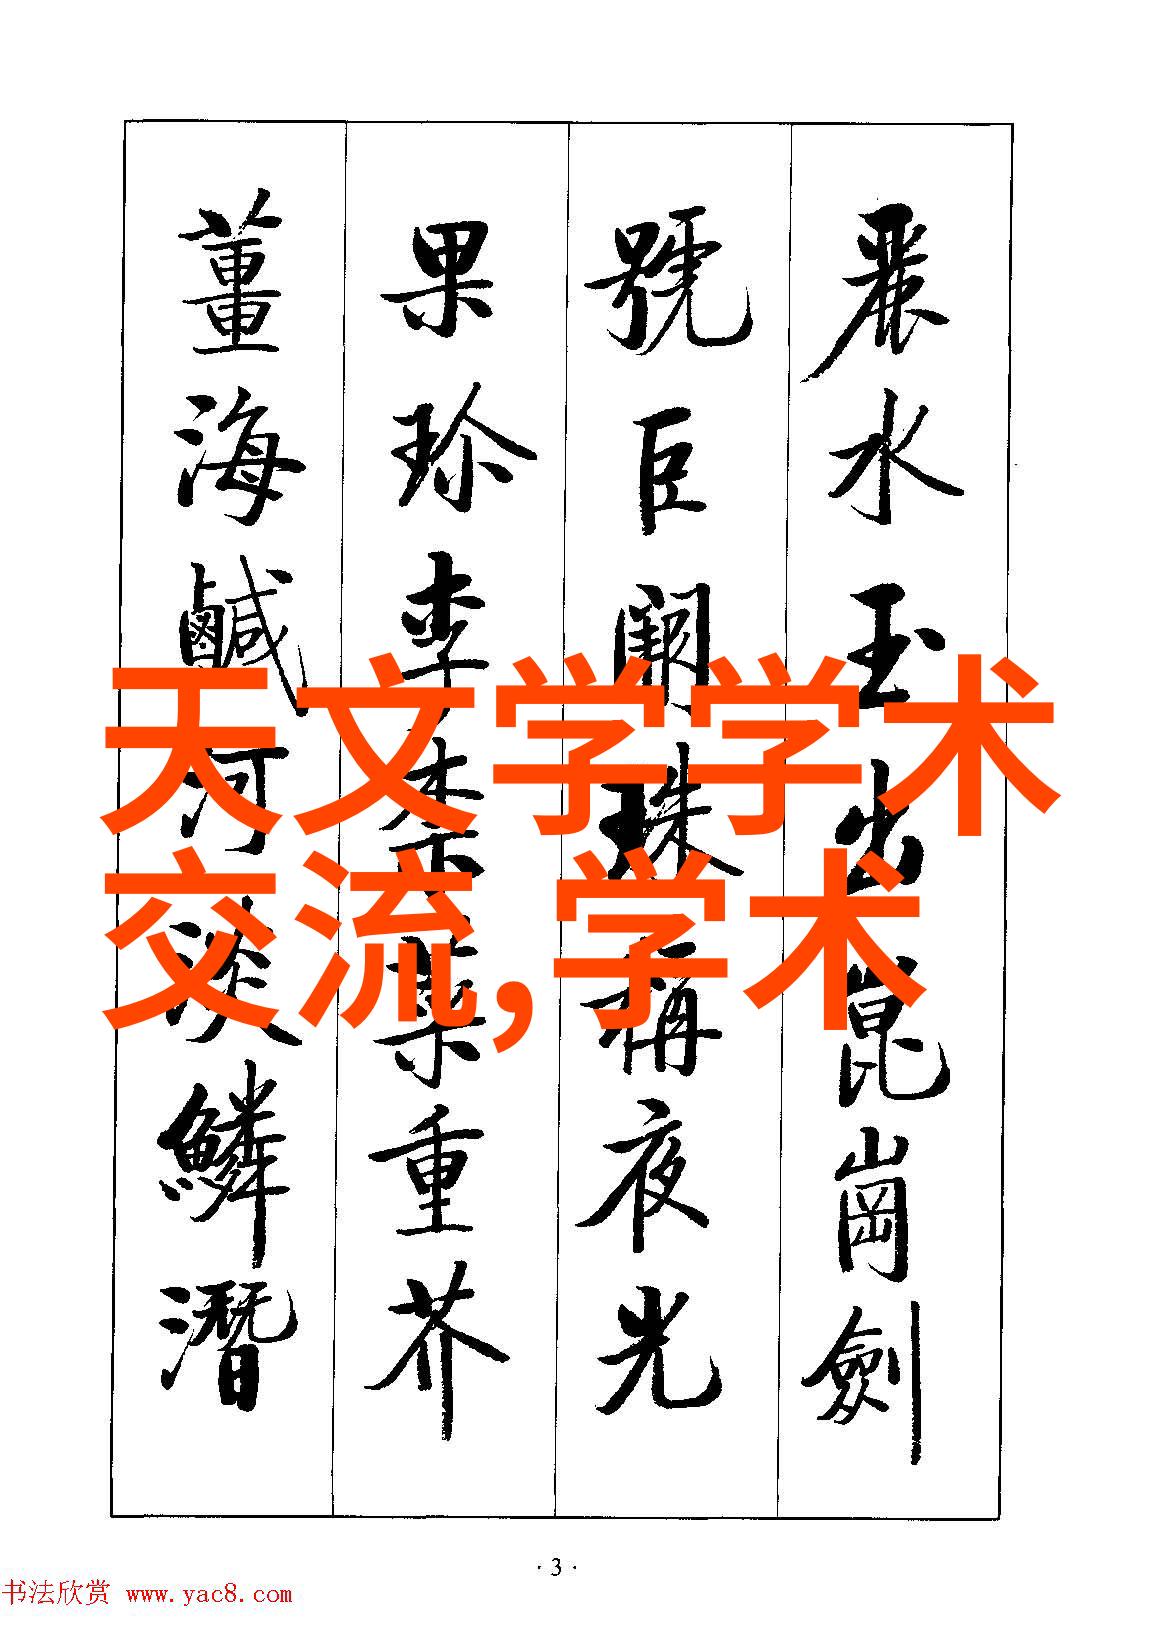 麗水玉出崑崗劍
號巨闕珠稱夜光
果珍李柰菜重芥
薑海鹹河淡鱗潛
天文学学术
交流,学术
·3·
书法欣赏 www.yac8.com